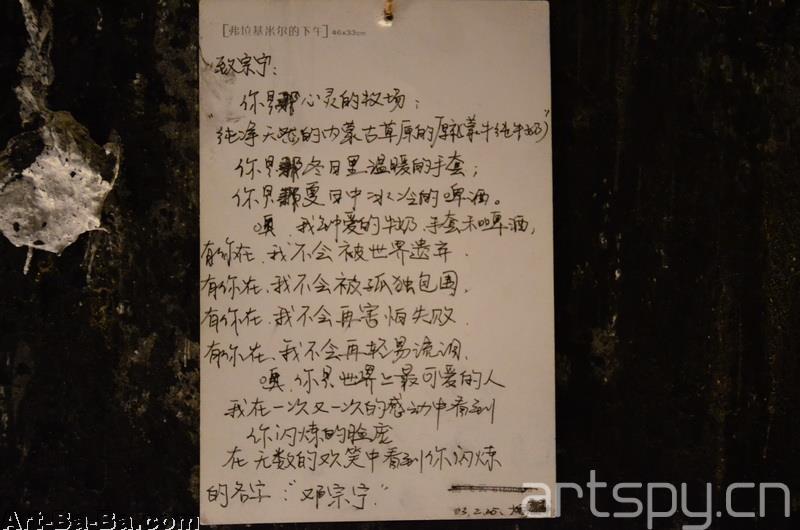 [弗拉基米尔的下午] 46x33cm
致宗宁:
你是那心灵的牧场;
"纯净无
的内蒙古草原的
蒙牛纯牛奶"
你是那冬日里温暖的手套;
你是那夏日中冰冷的啤酒。
噢,我钟爱的牛奶、手套和啤酒,
有你在,我不会被世界遗弃.
有你在,我不会被孤独包围.
有你在,我不会再害怕失败.
有你在,我不会再轻易流泪.
噢,你是世界上最可爱的人
我在一次又一次的感动中看到
你闪烁的脸庞
在无数的欢笑中看到你闪烁
的名字:"邓宗宁."
03.2.25.
artspy.cn
Art-Ba-Ba.com